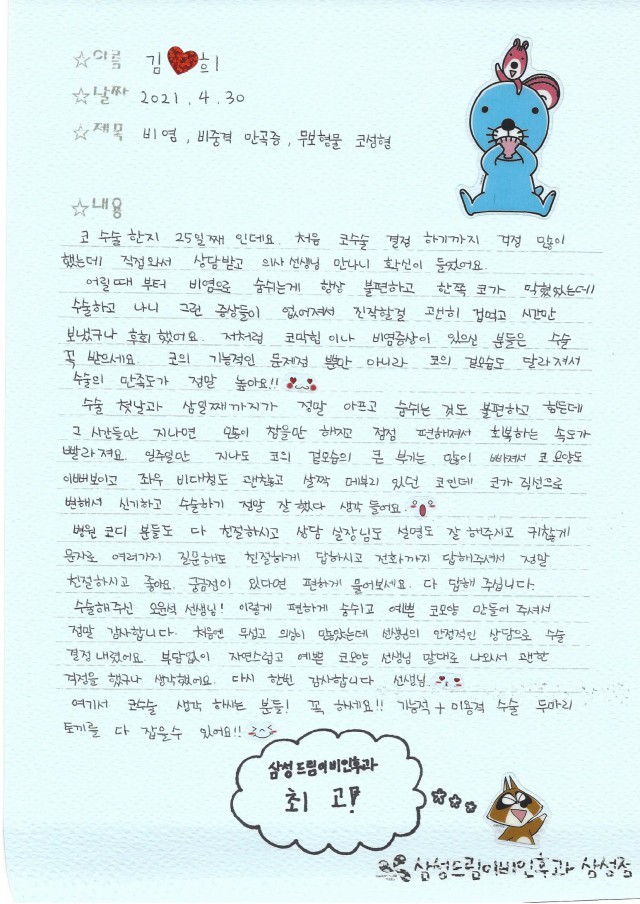 ☆이름 김♥희
☆날짜 2021. 4. 30
☆제목 비염, 비중격 만곡증, 무보형물 코성형
☆내용
코 수술 한지 25일째 인데요. 처음 코수술 결정 하기까지 걱정 많이
했는데 직접와서 상담받고 의사 선생님 만나니 확신이 들었어요.
어릴때 부터 비염으로 숨쉬는게 항상 불편하고 한쪽 코가 막혔었는데
수술하고 나니 그런 증상들이 없어져서 진작할걸 괜히 겁먹고 시간만
보냈구나 후회했어요. 저처럼 코막힘이나 비염증상이 있으신 분들은 수술
꼭 받으세요. 코의 기능적인 문제점 뿐만 아니라 코의 겉모습도 달라져서
수술의 만족도가 정말 높아요!!
수술 첫날과 삼일째까지가 정말 아프고 숨쉬는 것도 불편하고 힘든데
그 시간들만 지나면 많이 참을만 해지고 점점 편해져서 회복하는 속도가
빨라져요. 일주일만 지나도 코의 겉모습의 큰 부기는 많이 빠져서 코모양도
이뻐보이고 좌우 비대칭도 괜찮고 살짝 매부리 있던 코인데 코가 직선으로
변해서 신기하고 수술하기 정말 잘했다 생각 들어요.
병원 코디 분들도 다 친절하시고 상담 실장님도 설명도 잘 해주시고 귀찮게
문자로 여러가지 질문해도 친절하게 답하시고 전화까지 답해주셔서 정말
친절하시고 좋아요. 궁금점이 있다면 편하게 물어보세요. 다 답해 주십니다.
수술해주신 오윤석 선생님! 이렇게 편하게 숨쉬고 예쁜 코모양 만들어 주셔서
정말 감사합니다. 처음엔 무섭고 의심이 많았는데 선생님의 안정적인 상담으로 수술
결정 내렸어요. 부담없이 자연스럽고 예쁜 코모양 선생님 말대로 나와서 괜한
걱정을 했구나 생각했어요. 다시 한번 감사합니다 선생님.
여기서 코수술 생각 하시는 분들! 꼭 하세요!! 기능적 + 미용적 수술 두마리
토끼를 다 잡을수 있어요!!
삼성드림이비인후과
최고!
삼성드림이비인후과 삼성점